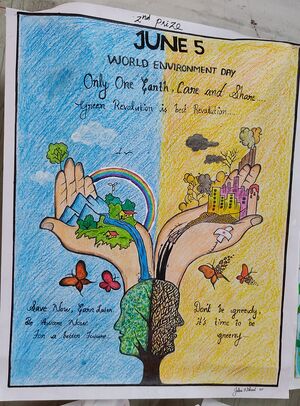 2nd Prize
JUNE 5
WORLD ENVIRONMENT DAY
Only One Earth, Care and Share....
Green Revolution is best Revolution....
Save Now, Earn Later.
Be Aware Now
For a better Future.
Don't be greedy,
it's time to be
greeny.